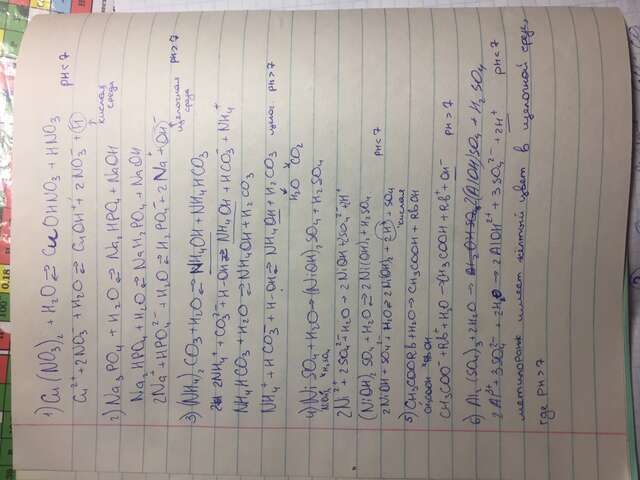 1) Cu(NO3)2 + H2O ⇄ CuOHNO3 + HNO3 pH<7
Cu2+ + 2NO3- + H2O ⇄ CuOH+ + 2NO3- + H+
кислая среда
2) Na3PO4 + H2O ⇄ Na2HPO4 + NaOH
Na2HPO4 + H2O ⇄ NaH2PO4 + NaOH
2Na+ + HPO4 2- + H2O ⇄ H2PO4- + 2Na+ + OH-
щелочная среда pH>7
3) (NH4)2CO3 + H2O ⇄ NH4OH + NH4HCO3
2NH4+ + CO3 2- + H-OH ⇄ NH4OH + HCO3- + NH4+
NH4HCO3 + H2O ⇄ NH4OH + H2CO3
NH4+ + HCO3- + H-OH ⇄ NH4OH + H2CO3 pH>7
H2O CO2
4) NiSO4 + H2O → (NiOH)2SO4 + H2SO4
2Ni2+ + 2SO4 2- + H2O → 2NiOH + 2SO4 2- + H+
(NiOH)2SO4 + H2O ⇄ 2Ni(OH)2 + H2SO4
2NiOH + SO4 + H2O ⇄ 2Ni(OH)2 + 2H + SO4 pH<7
кислая
5) CH3COORb + H2O → CH3COOH + RbOH
CH3COOH RbOH
CH3COO- + Rb+ + H2O → CH3COOH + Rb+ + OH- pH>7
6) Al2(SO4)3 + 2H2O → 2AlOHSO4 + H2SO4
2Al3+ + 3SO4 2- + 2H2O → 2AlOH2+ + 3SO4 2- + 2H+ pH<7
метилоранж имеет жёлтый цвет в щелочной среде,
где pH>7
0.18